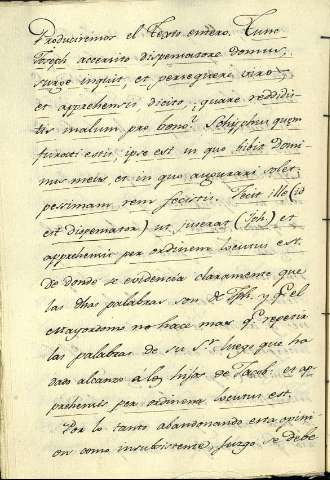 Produciremos el Texto entero. Tunc
Joseph accersito dispensatore domus,
surge inquit, et persequere viros,
et apprehensis dicito, quare reddidis
tis malum pro bono? Schyphus, quem
furati estis, ipse est in quo bibit domi-
nus meus, et in quo augurari solet
pessimam rem fecistis. Fecit ille (id
est dispensator) ut juserat (Jph.) et
apprehensis per ordinem locutus est.
de donde se evidencia claramente que
las dhas palabras son de Jph. y qe. el
Mayordomo no hace mas qe. repetir
las palabras de su Sr. luego que ha
dado alcanze à los hijos de Jacob. et ap
prehensis per ordinem locutus est.
Por lo tanto abandonando esta opini-
on como insubsistente, juzgo se debe